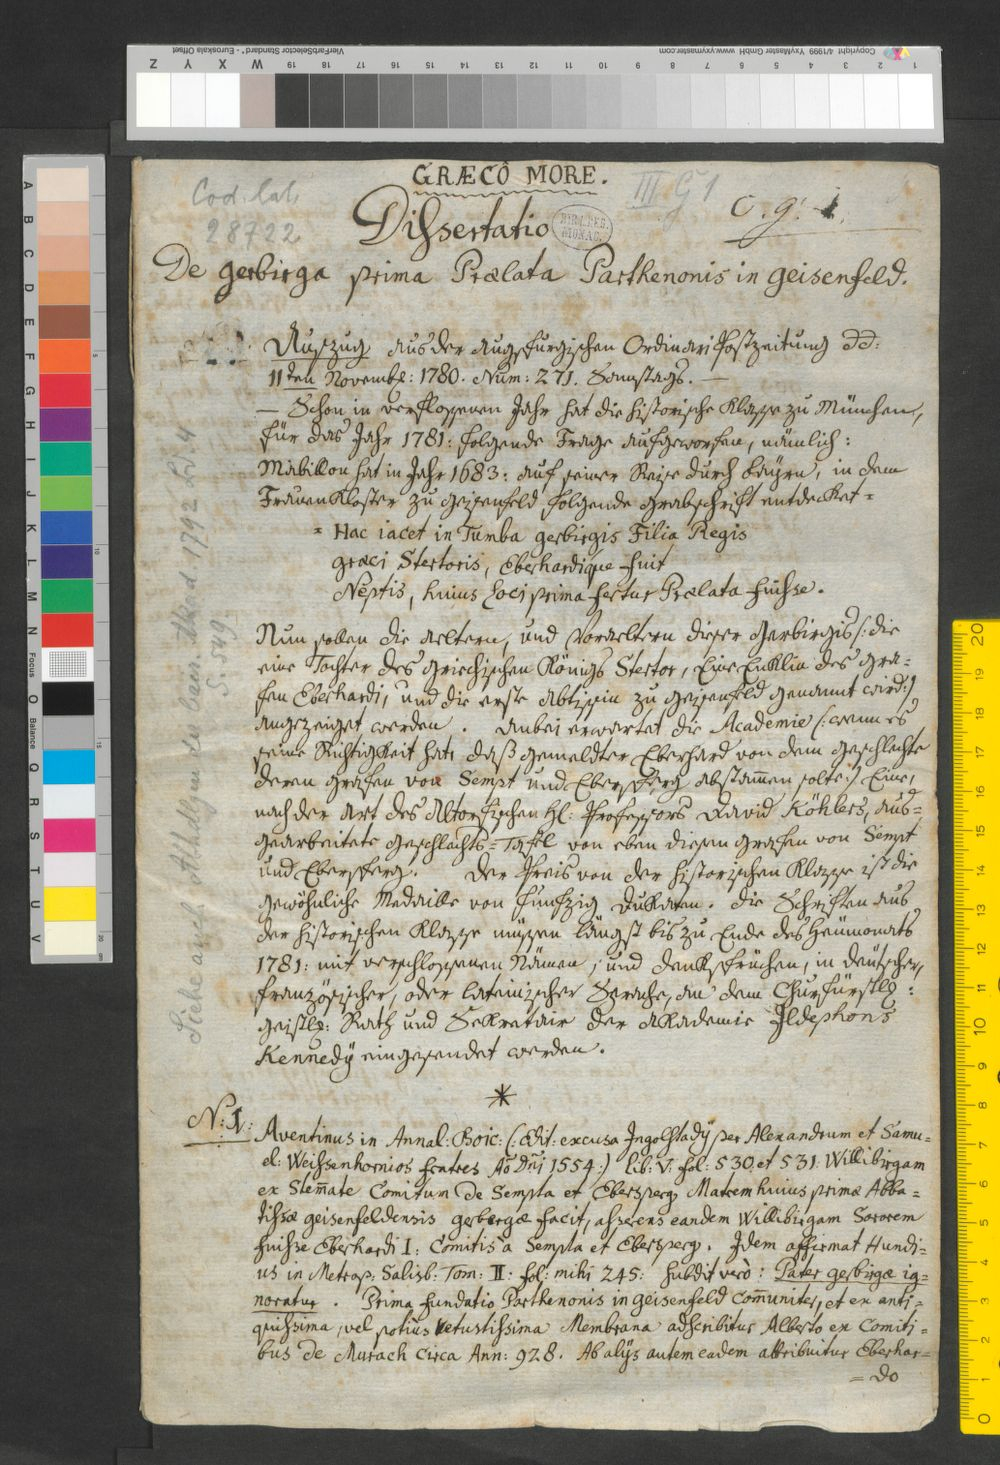 VierFarbSelector Standard* - Euroskala Offset
Copyright 4/1999 YxyMaster GmbH www.yxymaster.com
GRÆCÔ MORE.
Cod. lat.
28722
III G 1
C. g. 1.
Dissertatio
BIBL. REG. MONAC.
De Gerbirga prima Prælata Parthenonis in Geisenfeld.
Auszug aus der Augspurgischen Ordinari Postzeitung dd:
11ten Novembr: 1780. Num: 271. Samstags. —
— Schon in verflossenen Jahr hat die historische Klasse zu München,
für das Jahr 1781: folgende Frage aufgeworfen, nämlich:
Mabillon hat in Jahr 1683: auf seiner Reise durch Bayrn, in dem
Frauen Kloster zu Geisenfeld folgende Grabschrift entdecket =
= Hac iacet in Tumba Gerbirgis Filia Regis
Græci Stertoris, Eberhardique fuit
Neptis, huius Loci prima fertur Prælata fuisse.
Nun sollen die Aeltern, und Voraeltern dieser Gerbirgis /: die
eine Tochter des Griechischen Königs Stertor, Eine Enklin des Gra=
fen Eberhardi, und die erste Abtissin zu Geisenfeld genannt wird :/
angezeiget werden. Anbei erwartet die Academie /: wenn es
seine Richtigkeit hat, daß gemeldter Eberhard von dem Geschlechte
deren Grafen von Sempt und Ebersperg abstam̅en solte :/ Eine,
nach der Art des Altorfischen H: Professors David Köhlers, aus=
gearbeitete Geschlechts=Tafel von eben diesen Grafen von Sempt
und Ebersperg. Der Preis von der historischen Klasse ist die
gewöhnliche Medaille von funfzig Dukaten. Die Schriften aus
der historischen Klasse müssen längst bis zu Ende des Heumonats
1781: mit verschlossenen Nämen, und Denksprüchen, in deutscher,
französischer, oder lateinischer Sprache, an dem Churfürstl:
geistl: Rath und Sekretair der Akademie Ildephons
Kennedÿ eingesendet werden.
Siehe auch Abhdlgen der baier. Akad. 1792 Bd. 4
S. 549
*
N: I:
Aventinus in Annal: Boic: (: Edit: excusa Ingolstadÿ per Alexandrum et Samu=
el: Weissenhornios fratres Ao Dni 1554 :) lib: V. fol: 530 et 531. Willibirgam
ex Stem̅ate Comitum de Sempta et Ebersperg Matrem huius primæ Abba=
tissæ Geisenfeldensis Gerbergæ facit, asserens eandem Willibirgam Sororem
fuisse Eberhardi I: Comitis à Sempta et Ebersperg. Idem affirmat Hundi=
us in Metrop: Salisb: Tom: II: fol: mihi 245: subdit verò: Pater Gerbirgæ ig=
noratur. Prima fundatio Parthenonis in Geisenfeld com̅uniter, et ex anti=
quissima, vel potius vetustissima Membrana adscribitur Alberto ex Comiti=
bus de Murach circa Ann: 928. Ab alÿs autem eadem attribuitur Eberhar=
= do